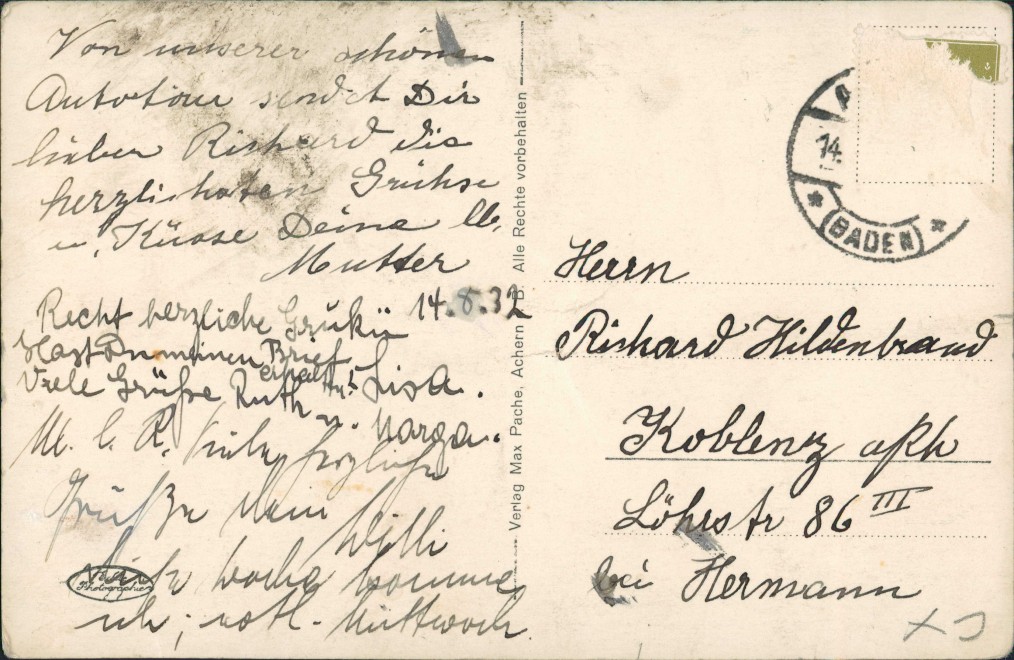 Von unserer schönen
Autotour sendet Dir
lieber Richard die
herzlichsten Grühse
u. Küsse Deine lb.
Mutter
14.8.32
Recht herzliche Grüße
Hast Du meinen Brief
erhalten? Lisa.
Viele Grüße Ruth
u. Marga.
M. l. R. Viele herzliche
Grüße Dein
Willi
Woche komme
ich, vstl. Mittwoch
Photographie
Verlag Max Pache, Achern B. Alle Rechte vorbehalten
14.
(BADEN)
Herrn
Richard Hildenbrand
Koblenz a/Rh
Löhrstr 86 III
bei Hermann